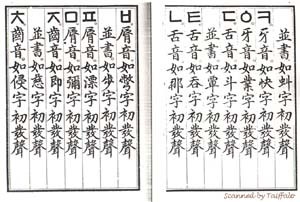 並書如虯字初發聲
ㅋ牙音如快字初發聲
ㆁ牙音如業字初發聲
ㄷ舌音如斗字初發聲
並書如覃字初發聲
ㅌ舌音如呑字初發聲
ㄴ舌音如那字初發聲
ㅂ脣音如彆字初發聲
並書如步字初發聲
ㅍ脣音如漂字初發聲
ㅁ脣音如彌字初發聲
ㅈ齒音如即字初發聲
並書如慈字初發聲
ㅊ齒音如侵字初發聲
Scanned by Taiffalo